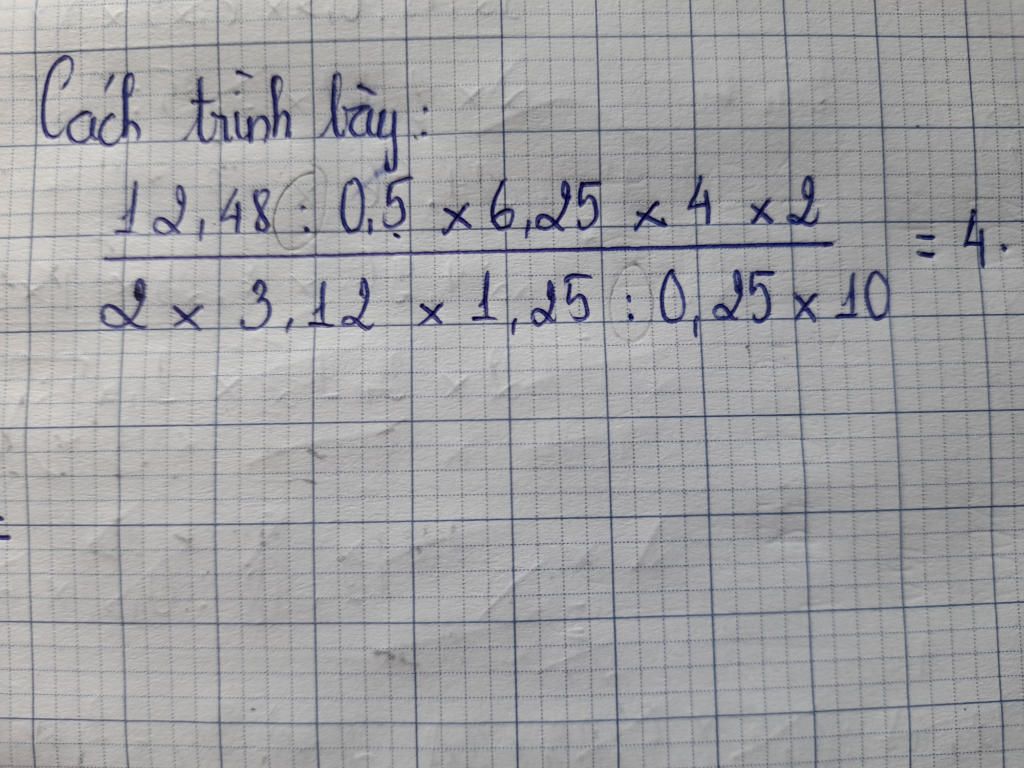 Cách trình bày:
12,48 : 0,5 × 6,25 × 4 × 2
= 4.
2 × 3,12 × 1,25 : 0,25 × 10